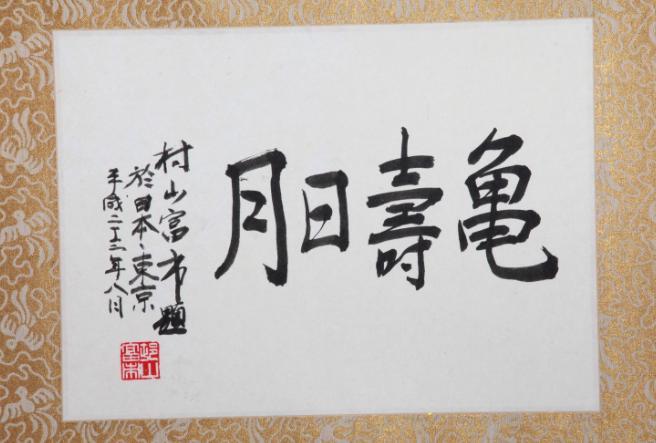 亀壽日月
村山富市題
於日本、東京
平成二十三年八月
村山
富市